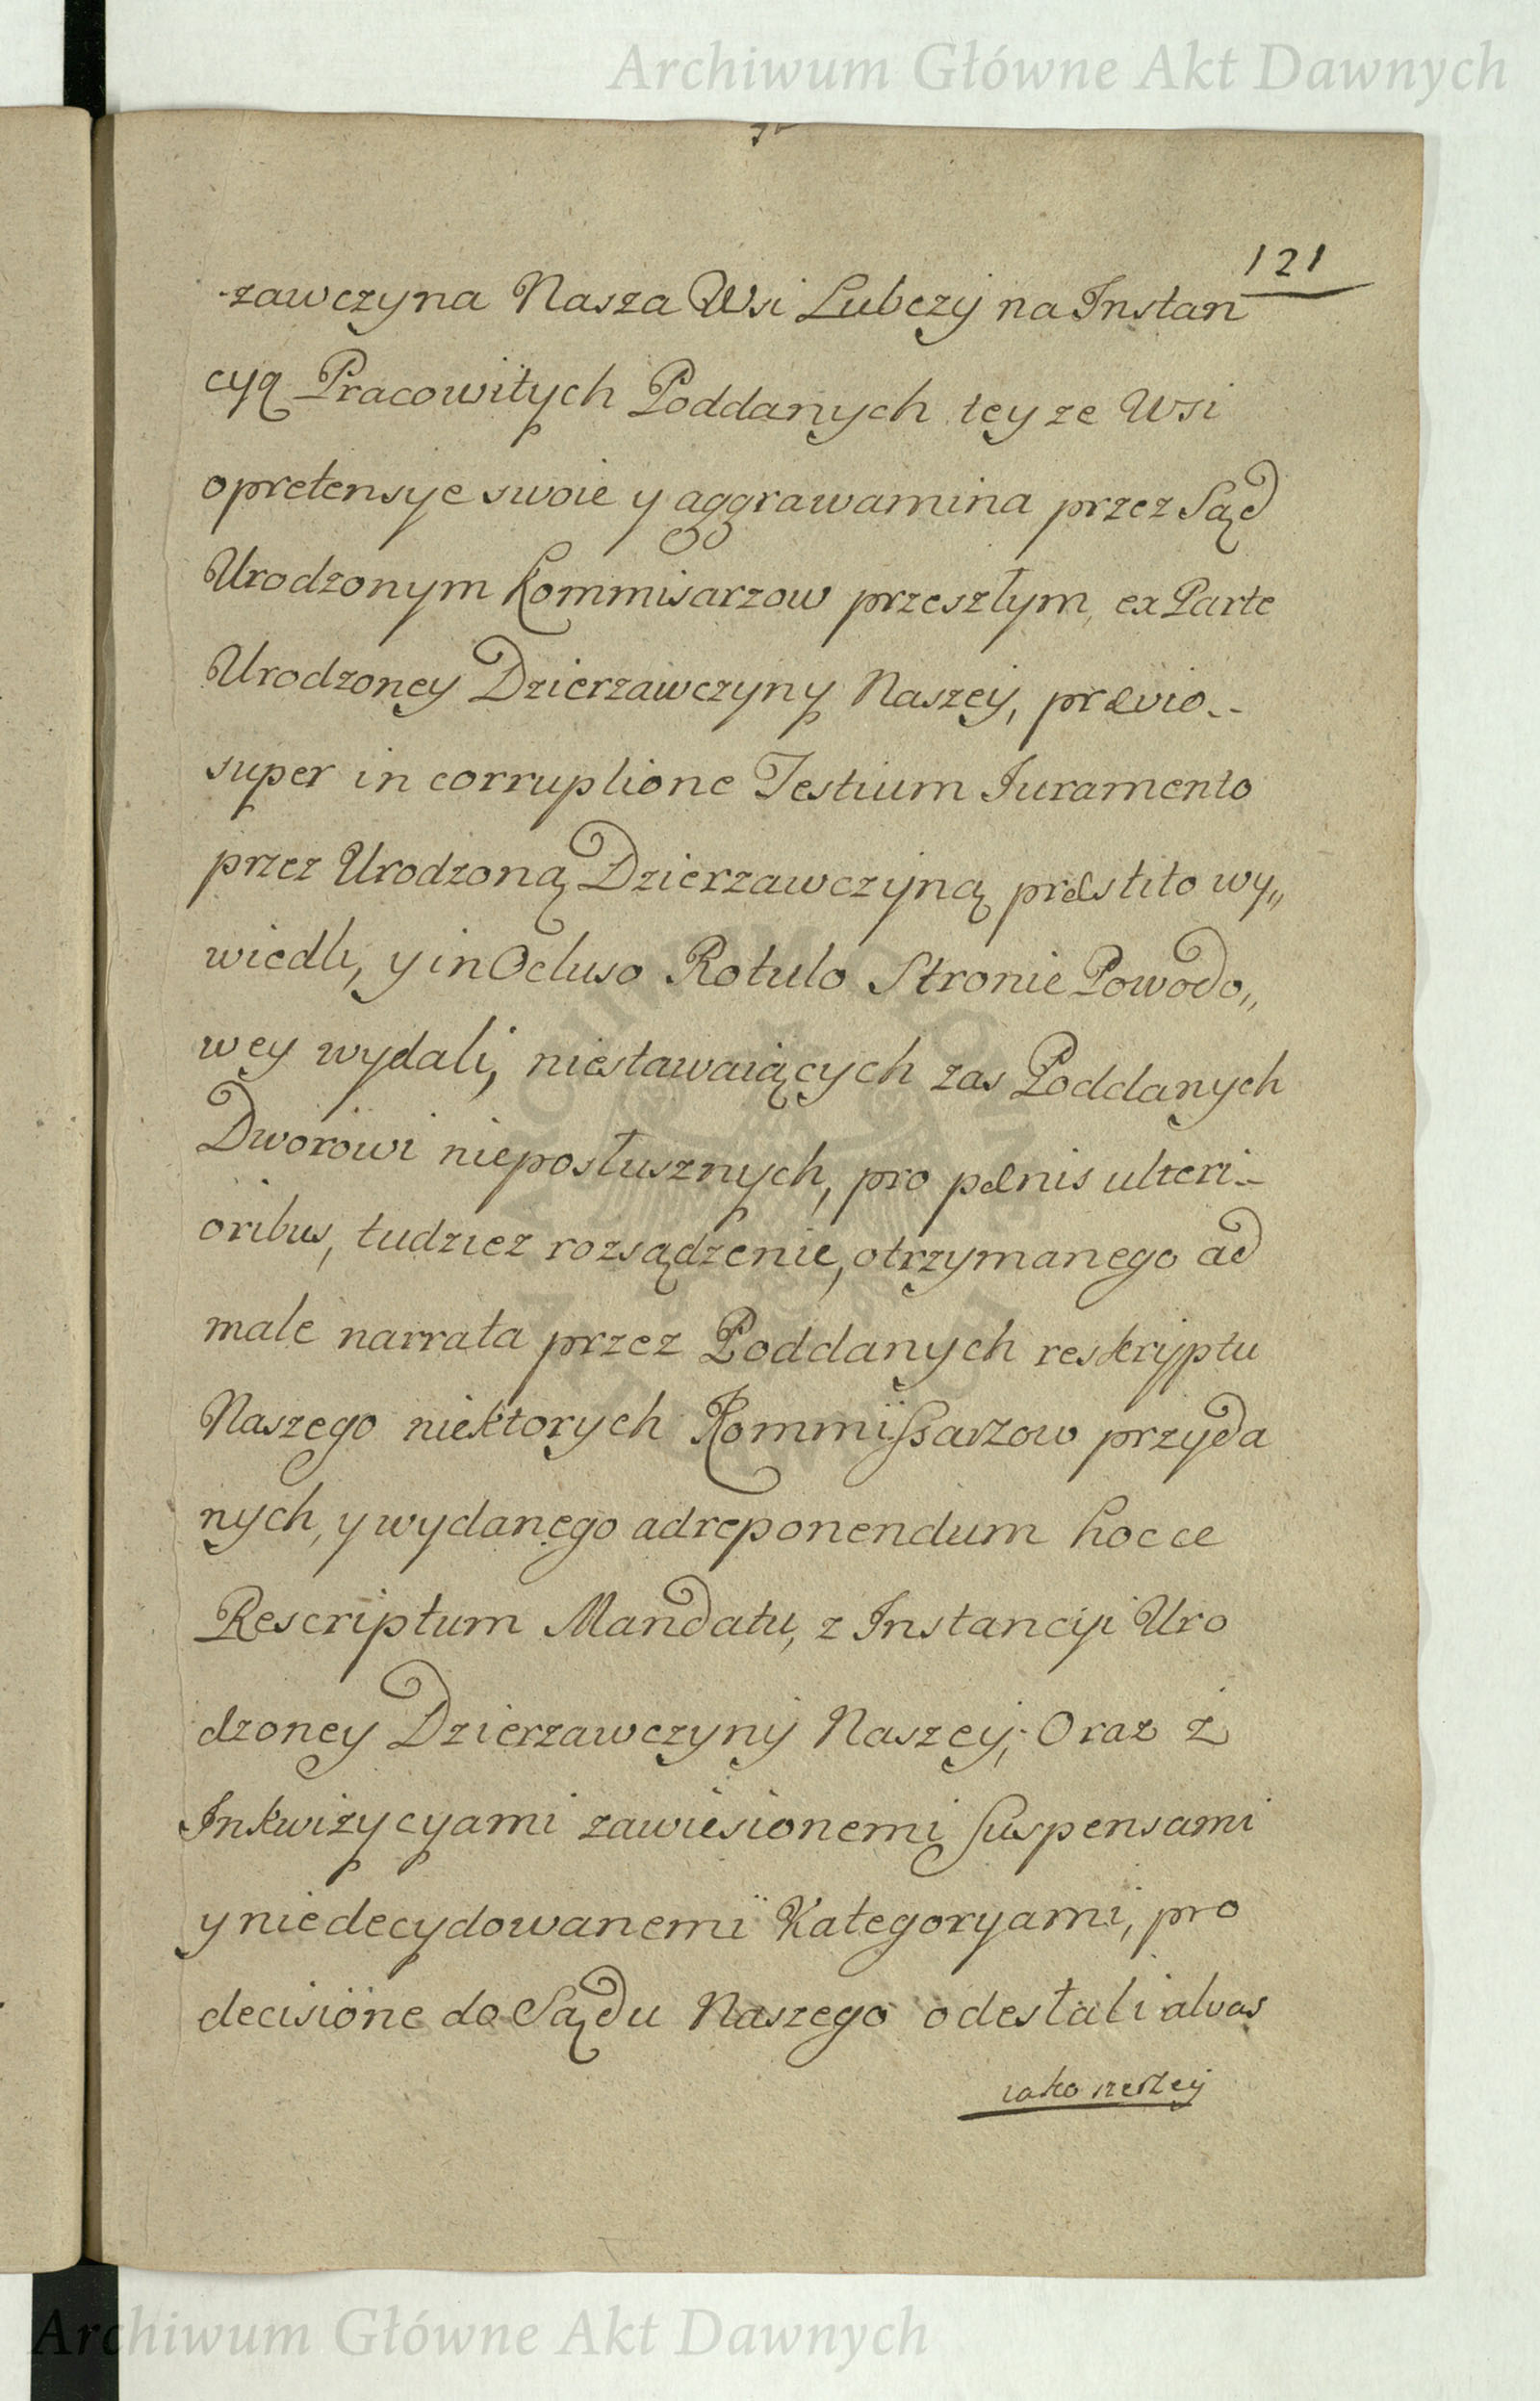 Archiwum Główne Akt Dawnych
121
-zawczyna Nasza Wsi Lubczy na Instan
cyą Pracowitych Poddanych teyze Wsi
o pretensye swoie y aggrawamina przez Sąd
Urodzonym Kommisarzow przeszłym, ex Parte
Urodzoney Dzierzawczyny Naszey, prævio
super in corruptione Testium Iuramento
przez Urodzoną Dzierzawczyną præstito wy„
wiedli, y in Ocluso Rotulo Stronie Powodo„
wey wydali, niestawaiących zas Poddanych
Dworowi nieposłusznych, pro pænis ulteri-
oribus, tudziez rozsądzenie, otrzymanego ad
male narrata przez Poddanych reskryptu
Naszego niektorych Kommissarzow przyda
nych, y wydanego ad reponendum hocce
Rescriptum Mandatu, z Instancyi Uro
dzoney Dzierzawczyny Naszey; Oraz z
Inkwizycyami zawiesionemi suspensami
y niedecydowanemi Kategoryami, pro
decisione do Sądu Naszego odestali a was
iako
Archiwum Główne Akt Dawnych